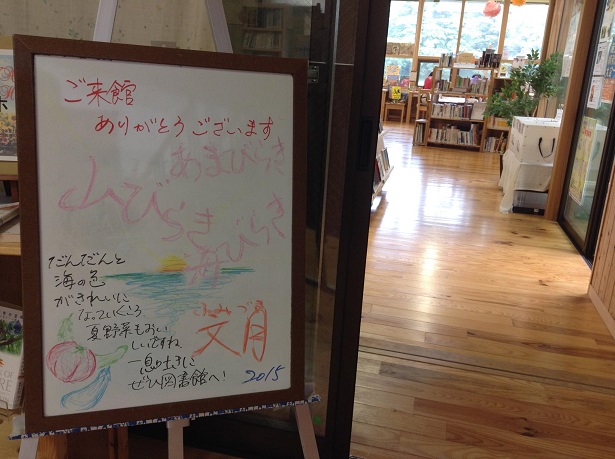 ご来館
ありがとうございます
あまびらき
山びらき
海びらき
だんだんと
海の色
がきれいに
なっていくころ
夏野菜もおい
しいですね
一息吐きに
ぜひ図書館へ!
ふみづき
文月
2015